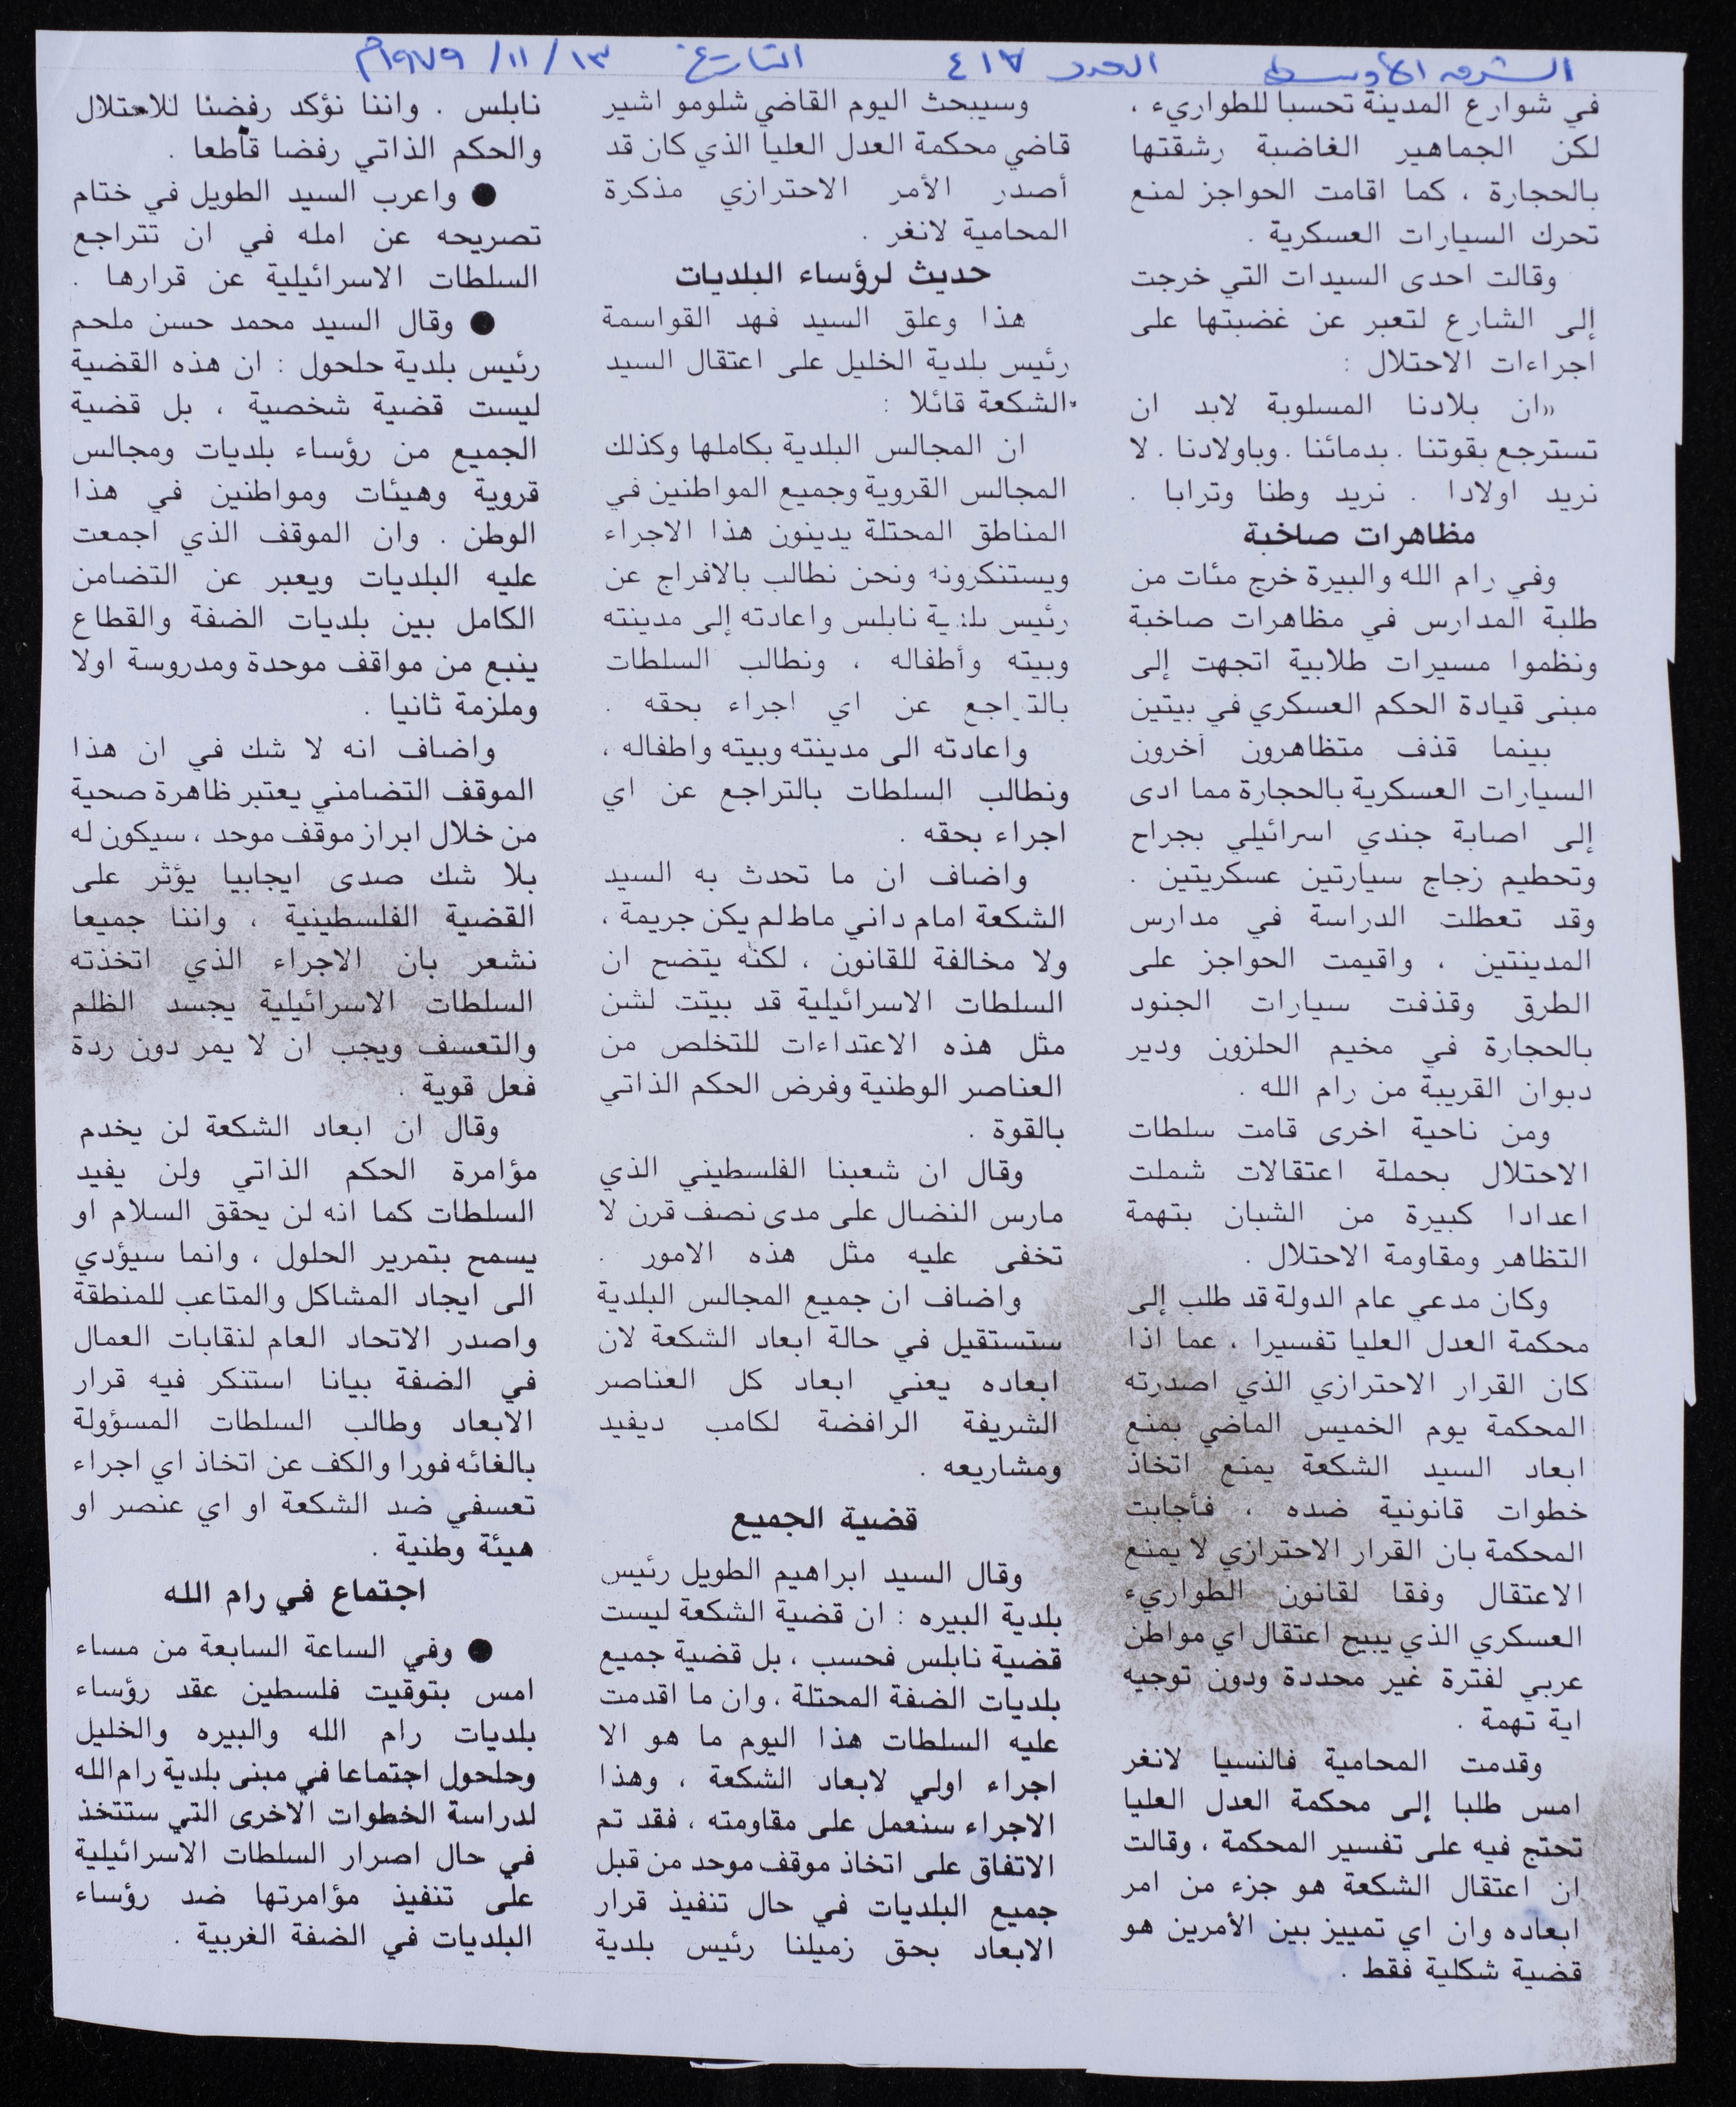 الشرق الأوسط العدد ٤١٧ التاريخ ١٣/ ١١/ ١٩٧٩م
في شوارع المدينة تحسبا للطواريء ،
لكن الجماهير الغاضبة رشقتها
بالحجارة ، كما اقامت الحواجز لمنع
تحرك السيارات العسكرية .
وقالت احدى السيدات التي خرجت
إلى الشارع لتعبر عن غضبتها على
اجراءات الاحتلال :
«ان بلادنا المسلوبة لابد ان
تسترجع بقوتنا . بدمائنا . وباولادنا . لا
نريد اولادا . نريد وطنا وترابا .
مظاهرات صاخبة
وفي رام الله والبيرة خرج مئات من
طلبة المدارس في مظاهرات صاخبة
ونظموا مسيرات طلابية اتجهت إلى
مبنى قيادة الحكم العسكري في بيتين
بينما قذف متظاهرون آخرون
السيارات العسكرية بالحجارة مما ادى
إلى اصابة جندي اسرائيلي بجراح
وتحطيم زجاج سيارتين عسكريتين .
وقد تعطلت الدراسة في مدارس
المدينتين ، واقيمت الحواجز على
الطرق وقذفت سيارات الجنود
بالحجارة في مخيم الحلزون ودير
دبوان القريبة من رام الله .
ومن ناحية اخرى قامت سلطات
الاحتلال بحملة اعتقالات شملت
اعدادا كبيرة من الشبان بتهمة
التظاهر ومقاومة الاحتلال .
وكان مدعي عام الدولة قد طلب إلى
محكمة العدل العليا تفسيرا ، عما اذا
كان القرار الاحترازي الذي اصدرته
المحكمة يوم الخميس الماضي بمنع
ابعاد السيد الشكعة يمنع اتخاذ
خطوات قانونية ضده ، فأجابت
المحكمة بان القرار الاحترازي لا يمنع
الاعتقال وفقا لقانون الطواريء
العسكري الذي يبيح اعتقال اي مواطن
عربي لفترة غير محددة ودون توجيه
اية تهمة .
وقدمت المحامية فالنسيا لانغر
امس طلبا إلى محكمة العدل العليا
تحتج فيه على تفسير المحكمة ، وقالت
ان اعتقال الشكعة هو جزء من امر
ابعاده وان اي تمييز بين الأمرين هو
قضية شكلية فقط .
وسيبحث اليوم القاضي شلومو اشير
قاضي محكمة العدل العليا الذي كان قد
أصدر الأمر الاحترازي مذكرة
المحامية لانغر .
حديث لرؤساء البلديات
هذا وعلق السيد فهد القواسمة
رئيس بلدية الخليل على اعتقال السيد
الشكعة قائلا :
ان المجالس البلدية بكاملها وكذلك
المجالس القروية وجميع المواطنين في
المناطق المحتلة يدينون هذا الاجراء
ويستنكرونه ونحن نطالب بالافراج عن
رئيس بلدية نابلس واعادته إلى مدينته
وبيته وأطفاله ، ونطالب السلطات
بالتراجع عن اي اجراء بحقه .
واعادته الى مدينته وبيته واطفاله ،
ونطالب السلطات بالتراجع عن اي
اجراء بحقه .
واضاف ان ما تحدث به السيد
الشكعة امام داني ماط لم يكن جريمة ،
ولا مخالفة للقانون ، لكنه يتضح ان
السلطات الاسرائيلية قد بيتت لشن
مثل هذه الاعتداءات للتخلص من
العناصر الوطنية وفرض الحكم الذاتي
بالقوة .
وقال ان شعبنا الفلسطيني الذي
مارس النضال على مدى نصف قرن لا
تخفى عليه مثل هذه الامور .
واضاف ان جميع المجالس البلدية
ستستقيل في حالة ابعاد الشكعة لان
ابعاده يعني ابعاد كل العناصر
الشريفة الرافضة لكامب ديفيد
ومشاريعه .
قضية الجميع
وقال السيد ابراهيم الطويل رئيس
بلدية البيره : ان قضية الشكعة ليست
قضية نابلس فحسب ، بل قضية جميع
بلديات الضفة المحتلة ، وان ما اقدمت
عليه السلطات هذا اليوم ما هو الا
اجراء اولي لابعاد الشكعة ، وهذا
الاجراء سنعمل على مقاومته ، فقد تم
الاتفاق على اتخاذ موقف موحد من قبل
جميع البلديات في حال تنفيذ قرار
الابعاد بحق زميلنا رئيس بلدية
نابلس . واننا نؤكد رفضنا للاحتلال
والحكم الذاتي رفضا قاطعا .
● واعرب السيد الطويل في ختام
تصريحه عن امله في ان تتراجع
السلطات الاسرائيلية عن قرارها .
● وقال السيد محمد حسن ملحم
رئيس بلدية حلحول : ان هذه القضية
ليست قضية شخصية ، بل قضية
الجميع من رؤساء بلديات ومجالس
قروية وهيئات ومواطنين في هذا
الوطن . وان الموقف الذي اجمعت
عليه البلديات ويعبر عن التضامن
الكامل بين بلديات الضفة والقطاع
ينبع من مواقف موحدة ومدروسة اولا
وملزمة ثانيا .
واضاف انه لا شك في ان هذا
الموقف التضامني يعتبر ظاهرة صحية
من خلال ابراز موقف موحد ، سيكون له
بلا شك صدى ايجابيا يؤثر على
القضية الفلسطينية ، واننا جميعا
نشعر بان الاجراء الذي اتخذته
السلطات الاسرائيلية يجسد الظلم
والتعسف ويجب ان لا يمر دون ردة
فعل قوية .
وقال ان ابعاد الشكعة لن يخدم
مؤامرة الحكم الذاتي ولن يفيد
السلطات كما انه لن يحقق السلام او
يسمح بتمرير الحلول ، وانما سيؤدي
الى ايجاد المشاكل والمتاعب للمنطقة
واصدر الاتحاد العام لنقابات العمال
في الضفة بيانا استنكر فيه قرار
الابعاد وطالب السلطات المسؤولة
بالغائه فورا والكف عن اتخاذ اي اجراء
تعسفي ضد الشكعة او اي عنصر او
هيئة وطنية .
اجتماع في رام الله
● وفي الساعة السابعة من مساء
امس بتوقيت فلسطين عقد رؤساء
بلديات رام الله والبيره والخليل
وحلحول اجتماعا في مبنى بلدية رام الله
لدراسة الخطوات الاخرى التي ستتخذ
في حال اصرار السلطات الاسرائيلية
على تنفيذ مؤامرتها ضد رؤساء
البلديات في الضفة الغربية .